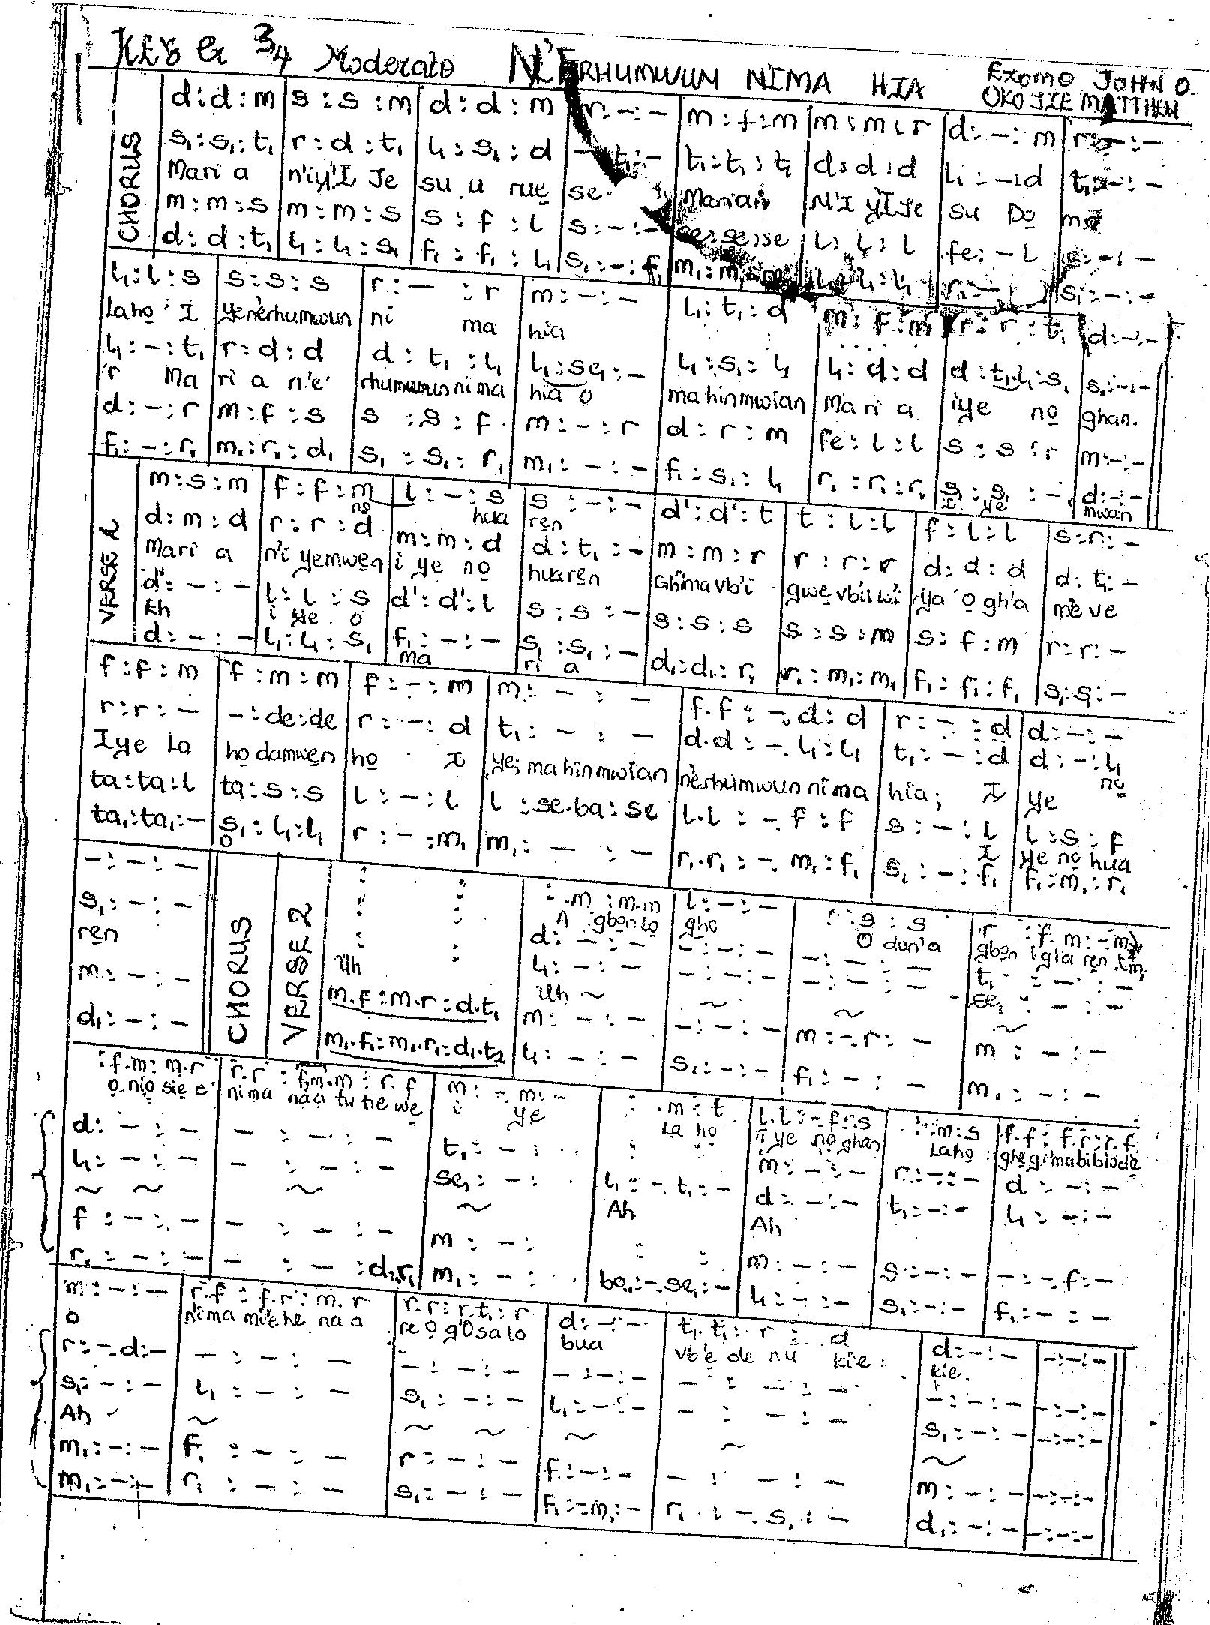 KEY G 3/4 Moderato N'ERHUMWUN NIMA HIA EXOMO JOHN O.
OKOJIE MATTHEW
CHORUS
d : d : m | s : s : m | d : d : m | r : - : - | m : f : m | m : m : r | d : - : m | r : - : -
s₁ : s₁ : t₁ | r : d : t₁ | l₁ : s₁ : d | - t₁ : - | t₁ : t₁ : t₁ | d : d : d | l₁ : - : d | t₁ : - : -
Mari a n'iyi'I Je su u rue se Marian N'I YI Je su Do ma
m : m : s | m : m : s | s : f : l | s : - : - | se : se : se | l : l : l | fe : - l | s : - : -
d : d : t₁ | l₁ : l₁ : s₁ | f₁ : f₁ : l₁ | s₁ : - : f₁ | m₁ : m₁ : m₁ | l₁ : l₁ : l₁ | r₁ : - | s₁ : - : -
l₁ : l : s | s : s : s | r : - : r | m : - : - | l₁ : t₁ : d | m : f : m | r : r : t₁ | d : - : -
Laho I yenerhumwun ni ma hia
l₁ : - : t₁ | r : d : d | d : t₁ : l₁ | l₁ : se₁ : - | l₁ : s₁ : l₁ | l₁ : d : d | d : t₁ l₁ : s₁ | s₁ : - : -
'r Ma ri a n'e' rhumwun ni ma hia o ma hinmwian Mari a iye nọ ghan.
d : - : r | m : f : s | s : s : f | m : - : r | d : r : m | fe : l : l | s : s : r | m : - : -
f₁ : - : r₁ | m₁ : r₁ : d₁ | s₁ : s₁ : r₁ | m₁ : - : - | f₁ : s₁ : l₁ | r₁ : r₁ : r₁ | s₁ : s₁ : - | d : - : -
I ye mwan
VERSE 1
m : s : m | f : f : m | l : - : s | s : - : - | d' : d' : t | t : l : l | f : l : l | s : r : -
nọ hua ren
d : m : d | r : r : d | m : m : d | d : t₁ : - | m : m : r | r : r : r | d : d : d | d : t₁ : -
Mari a n'i yemwẹn i ye nọ huaren Ghimavb'i gwẹ vbi wi ya 'o gha me ve
d' : - : - | l : l : s | d' : d' : l | s : s : - | s : s : s | s : s : m | s : f : m | r : r : -
Eh i ye o
d : - : - | l₁ : l₁ : s₁ | f₁ : - : - | s₁ : s₁ : - | d₁ : d₁ : r₁ | r₁ : m₁ : m₁ | f₁ : f₁ : f₁ | s₁ : s₁ : -
ma ri a
f : f : m | f : m : m | f : - : m | m : - : - | f.f : - . d : d | r : - : d | d : - : -
r : r : - | - : de : de | r : - : d | t₁ : - : - | d.d : - . l₁ : l₁ | t₁ : - : d | d : - : l₁
Iye La họ damwẹn họ I ye; ma hin mwian nerhumwun ni ma hia; I ye nọ
ta : ta : l | ta : s : s | l : - : l | l : se . ba : se | l.l : - . f : f | s : - : l | l : s : f
ta₁ : ta₁ : - | s₁ : l₁ : l₁ | r : - : m₁ | m₁ : - : - | r₁.r₁ : - . m₁ : f₁ | s₁ : - : f₁ | f₁ : m₁ : r₁
o I ye nọ hua
- : - : -
s₁ : - : -
rẹn
m : - : -
d₁ : - : -
CHORUS
VERSE 2
: . m : m.m | l : - : - | r : s : s | r : f . m : - m
A gbọn lo ghọ O dun'a gbọn i gha rẹn
d : - : - | - : - : - | - : - : - | t₁ : - : -
l₁ : - : - | - : - : - | - : - : - | se₁ : - : -
Uh Uh ~ ~ ~ ~
m.f : m.r : d.t₁ | m : - : - | - : - : - | m : - r : - | m : - : -
m₁.f₁ : m₁.r₁ : d₁.t₂ | l₁ : - : - | s₁ : - : - | f₁ : - : - | m₁ : - : -
: f.m : m.r | r.r : f.m.m : r.f | m : - m : - | : m : t | l.l : - f : s | : m : s | f.f : f.r : r.f
o nio siẹ e' ni ma naa tu tie wẹ i ye La họ i ye nọ ghan Laho ghọ gi mabibiode
d : - : - | - : - : - | t₁ : - : | : : | m : - : - | r : - : - | d : - : -
l₁ : - : - | - : - : - | se₁ : - : | l₁ : - . t₁ : - | d : - : - | t₁ : - : - | l₁ : - : -
~ ~ ~ ~ Ah Ah
f : - : - | - : - : - | m : - : | : : | m : - : - | s : - : - | - : - . f : -
r₁ : - : - | - : - : d₁.r₁ | m₁ : - : | ba₁ : - . se₁ : - | l₁ : - : - | s₁ : - : - | f₁ : - : -
m : - : - | r.f : f.r : m.r | r.r : r.t₁ : r | d : - : - | t₁.t₁ : r : d | d : - : - | - : - : -
o ni ma miehe na a re o g'osa lo bua vb'e de nu kie. kie.
r : - . d : - | - : - : - | - : - : - | - : - : - | - : - : - | - : - : - | - : - : -
s₁ : - : - | l₁ : - : - | s₁ : - : - | l₁ : - : - | - : - : - | s₁ : - : - | - : - : -
Ah ~ ~ ~ ~ ~ ~ ~
m₁ : - : - | f₁ : - : - | r : - : - | f : - : - | - : - : - | m : - : - | - : - : -
m₁ : - : - | r₁ : - : - | s₁ : - : - | f₁ : - m₁ : - | r₁ : - . s₁ : - | d₁ : - : - | - : - : -